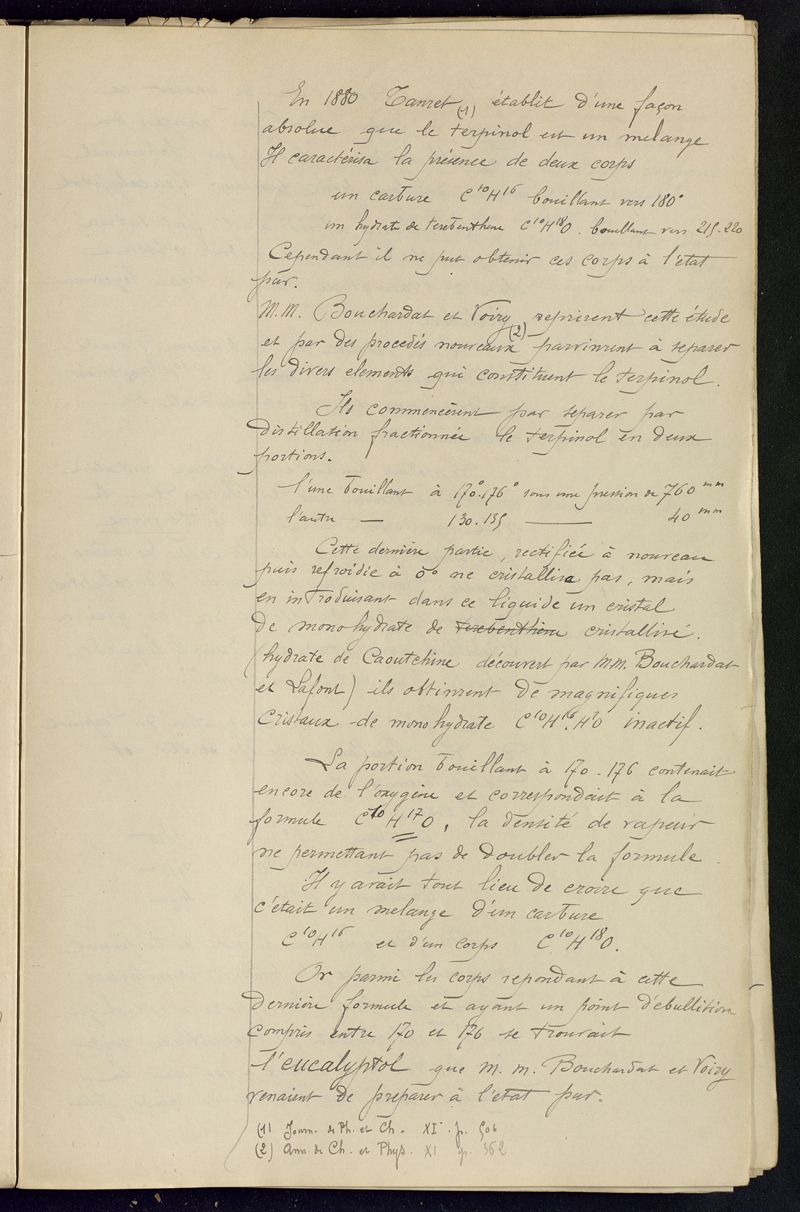 En 1880 Tanret (1) établit d'une façon
absolue que le terpinol est un melange
Il caractérisa la présence de deux corps
un carbure C¹⁰H¹⁶ bouillant vers 180°
un hydrate de terebenthene C¹⁰H¹⁸O. bouillant vers 215-220
Cependant il ne put obtenir ces corps à l'état
pur.
M.M. Bouchardat et Voiry (2) reprirent cette étude
et par des procedés nouveaux parvinrent à separer
les divers elements qui constituent le terpinol.
Ils commencèrent par separer par
distillation fractionnée le terpinol en deux
portions.
l'une bouillant à 170°.176° sous une pression de 760 mm
l'autre — 130.135 — 40 mm
Cette dernière partie, rectifiée à nouveau
puis refroidie à 0° ne cristallisa pas, mais
en introduisant dans ce liquide un cristal
de monohydrate de terebenthene cristallisé.
(hydrate de Caoutchine découvert par MM. Bouchardat
et Lafont) ils obtinrent de magnifiques
cristaux de monohydrate C¹⁰H¹⁶.H²O inactif.
La portion bouillant à 170.176 contenait
encore de l'oxygène et correspondait à la
formule C¹⁰H¹⁷O, la densité de vapeur
ne permettant pas de doubler la formule.
Il y avait tout lieu de croire que
c'était un melange d'un carbure
C¹⁰H¹⁶ et d'un corps C¹⁰H¹⁸O.
Or parmi les corps repondant à cette
dernière formule et ayant un point d'ébullition
compris entre 170 et 176 se trouvait
l'eucalyptol que M.M. Bouchardat et Voiry
venaient de preparer à l'état pur.
(1) Journ. de Ph. et Ch. XI. p. 506
(2) Ann. de Ch. et Phys. XI p. 562